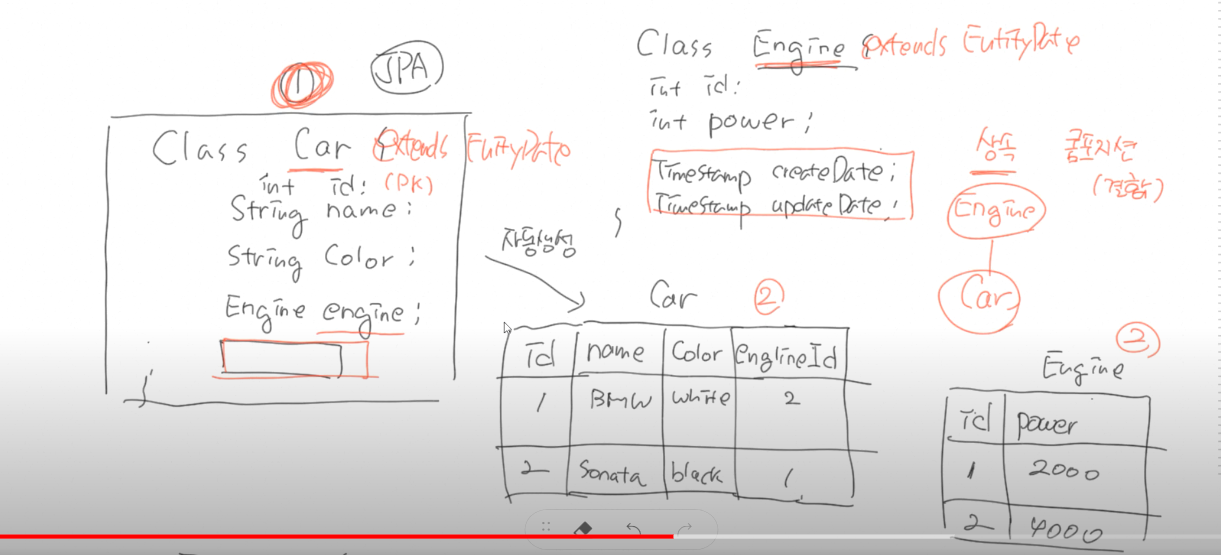 ①
JPA
Class Car { extends EntityDate
int id; (PK)
String name;
String Color;
Engine engine;
}
Class Engine { extends EntityDate
int id;
int power;
Timestamp createDate;
Timestamp updateDate;
}
상속
콤포지션
(결합)
Engine
Car
자동생성
Car ②
id name Color englineId
1 BMW white 2
2 Sonata black 1
Engine ②
id power
1 2000
2 4000